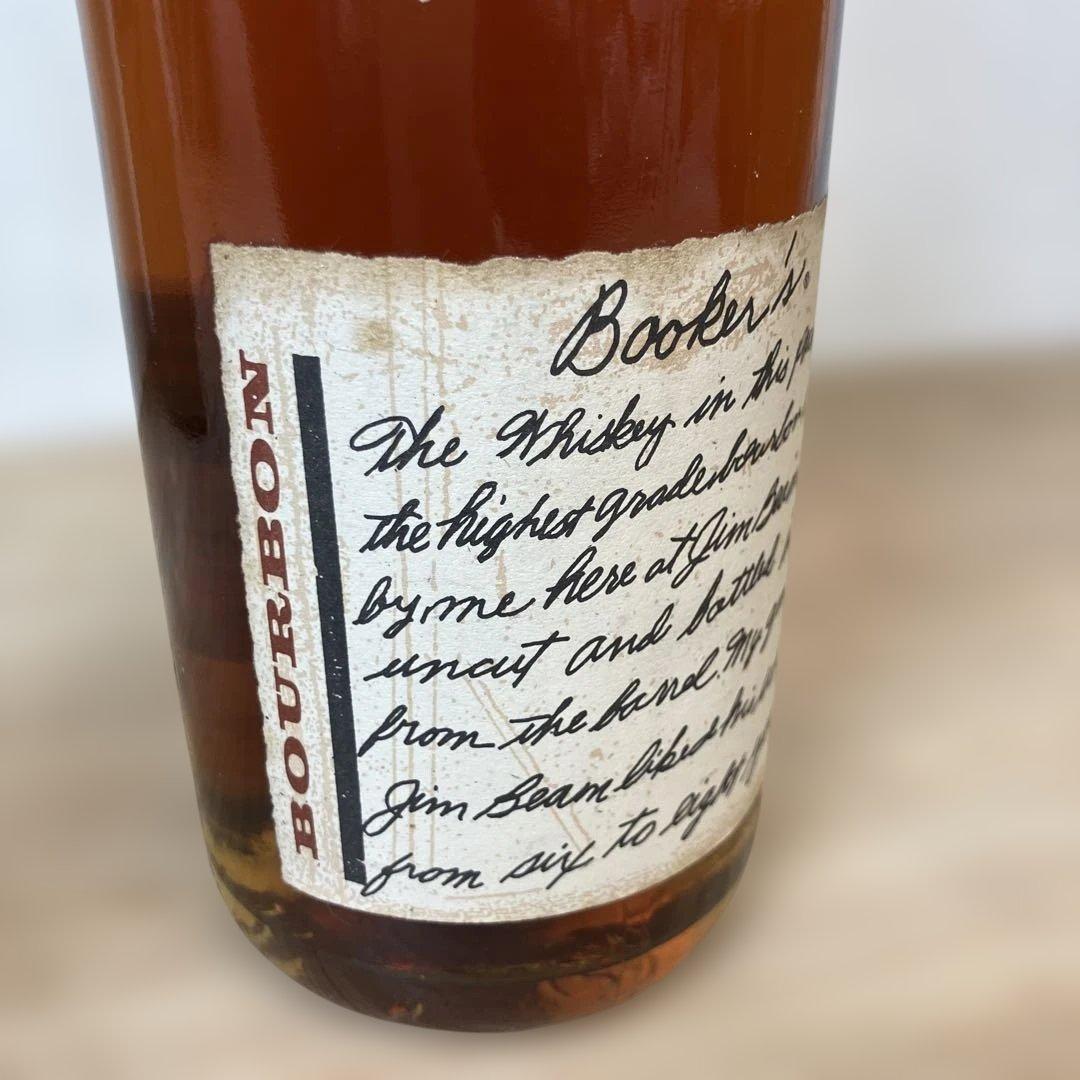 BOURBON
Booker's.
The Whiskey in this
the highest grade bourbon
by me here at Jim Beam
uncut and bottled
from the barrel. My
Jim Beam liked his
from six to eight